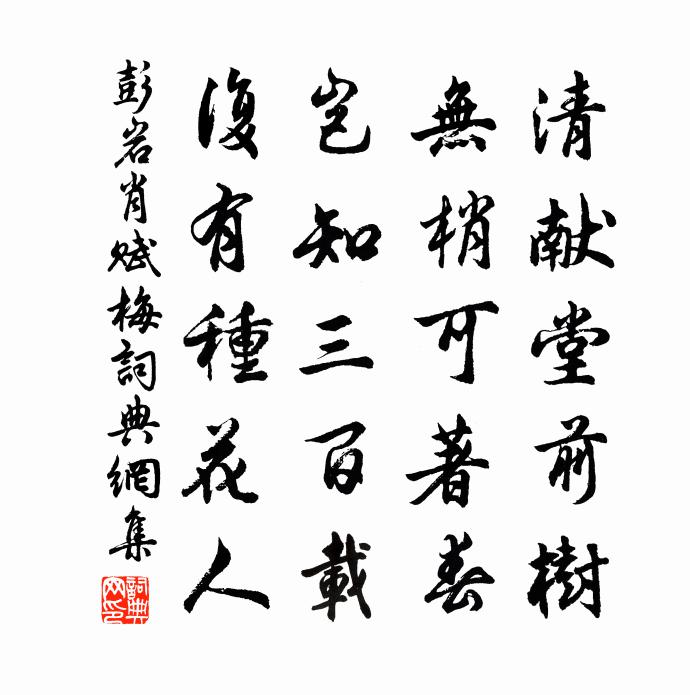 清献堂前樹
無梢可著春
豈知三百載
復有種花人
彭岩肖赋梅詞典網集
詞典网印